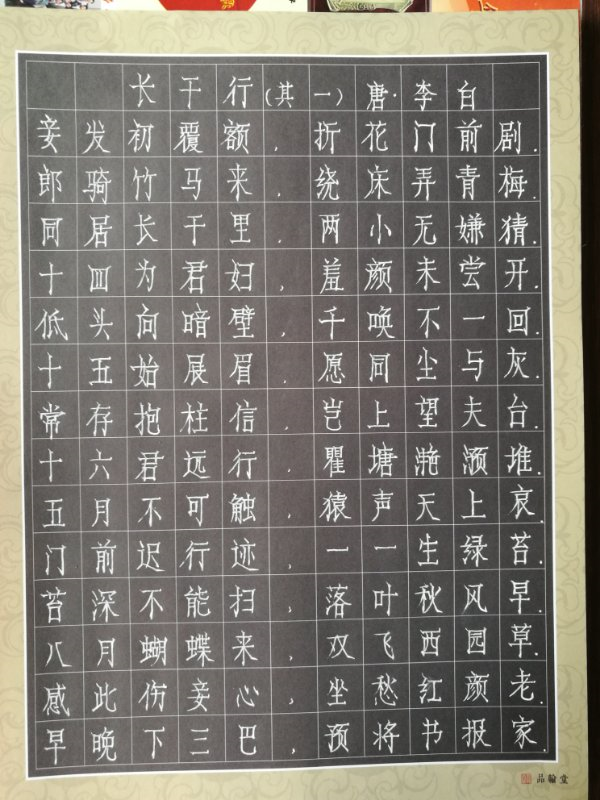 长干行(其一)唐·李白
妾发初覆额,折花门前剧.
郎骑竹马来,绕床弄青梅.
同居长干里,两小无嫌猜.
十四为君妇,羞颜未尝开.
低头向暗壁,千唤不一回.
十五始展眉,愿同尘与灰.
常存抱柱信,岂上望夫台.
十六君远行,瞿塘滟滪堆.
五月不可触,猿声天上哀.
门前迟行迹,一一生绿苔.
苔深不能扫,落叶秋风早.
八月蝴蝶来,双飞西园草.
感此伤妾心,坐愁红颜老.
早晚下三巴,预将书报家.
品翰堂